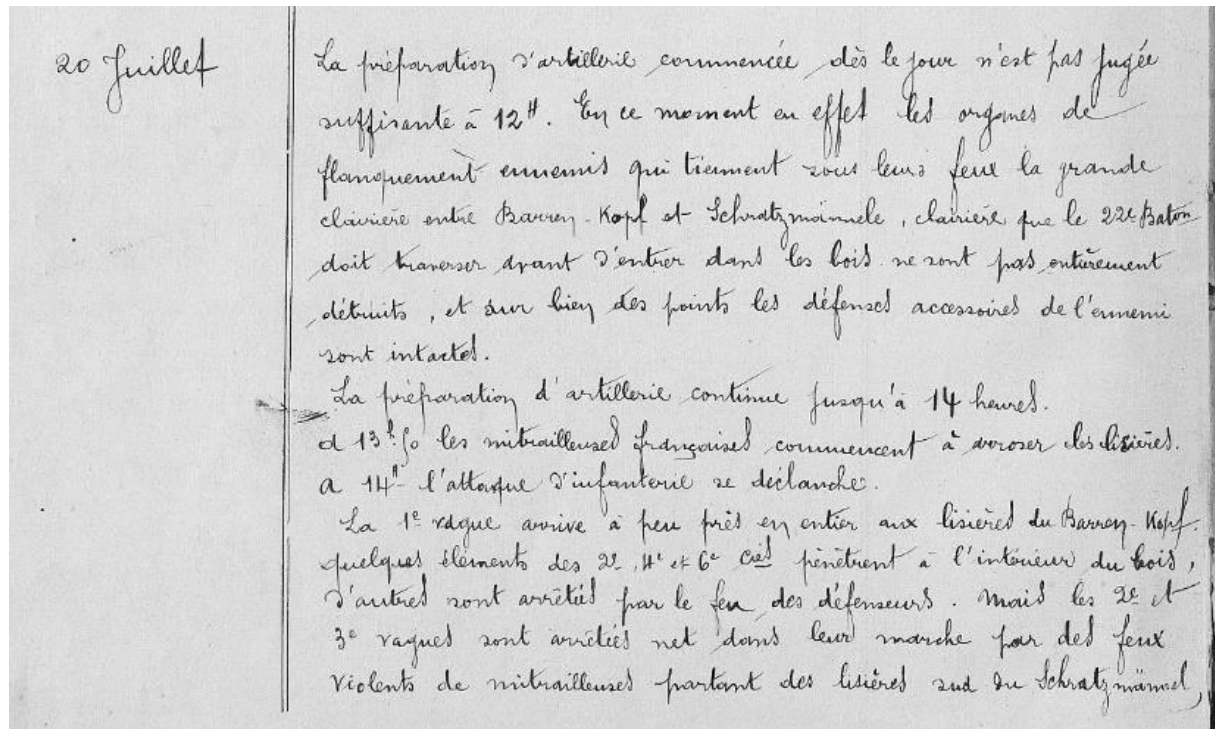 20 Juillet
La préparation d'artillerie commencée dès le jour n'est pas jugée
suffisante à 12H. En ce moment en effet les organes de
flanquement ennemis qui tiennent sous leurs feux la grande
clairière entre Barren-Kopf et Schratzmännele, clairière que le 22e Baton
doit traverser avant d'entrer dans les bois ne sont pas entièrement
détruits, et sur bien des points les défenses accessoires de l'ennemi
sont intactes.
La préparation d'artillerie continue jusqu'à 14 heures.
A 13h50 les mitrailleuses françaises commencent à arroser les lisières.
A 14H l'attaque d'infanterie se déclanche.
La 1e vague arrive à peu près en entier aux lisières du Barren-Kopf.
quelques éléments des 2e, 4e et 6e Cies pénètrent à l'intérieur du bois,
d'autres sont arrêtés par le feu des défenseurs. Mais les 2e et
3e vagues sont arrêtées net dans leur marche par des feux
violents de mitrailleuses partant des lisières sud du Schratzmännel,